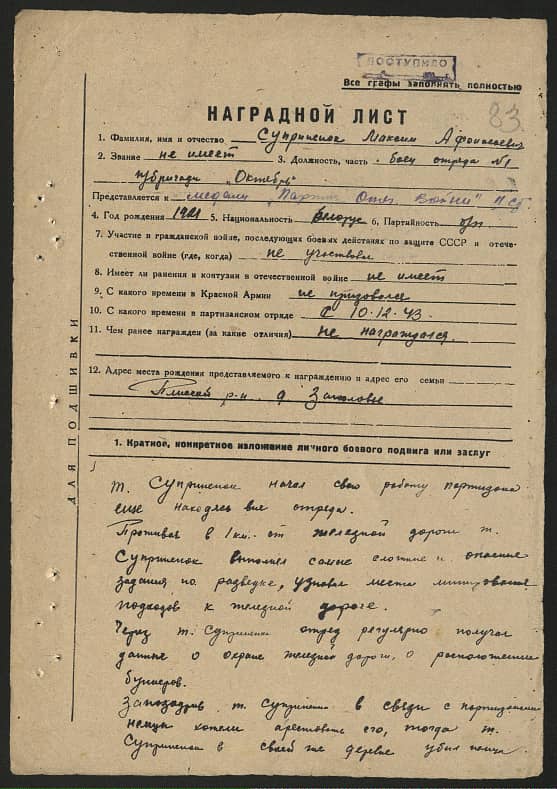 ПОСТУПИЛО
Все графы заполнять полностью
83
НАГРАДНОЙ ЛИСТ
1. Фамилия, имя и отчество Суприненок Максим Афонасевич
2. Звание не имеет 3. Должность, часть боец отряда №1
п/бригады "Октябрь"
Представляется к медали "Партиз. Отеч. Войны" II ст.
4. Год рождения 1921 5. Национальность белорус 6. Партийность б/п
7. Участие в гражданской войне, последующих боевых действиях по защите СССР и отече-
ственной войне (где, когда) не участвовал
8. Имеет ли ранения и контузии в отечественной войне не имеет
9. С какого времени в Красной Армии не призывался
10. С какого времени в партизанском отряде с 10.12.43
11. Чем ранее награжден (за какие отличия) не награждался.
12. Адрес места рождения представляемого к награждению и адрес его семьи
р-н д
ДЛЯ ПОДШИВКИ
1. Краткое, конкретное изложение личного боевого подвига или заслуг
т. Суприненок начал свою работу партизана
еще находясь вне отряда.
Проживая в 1 км. от железной дороги т.
Суприненок выполнял самые сложные и опасные
задания по разведке, узнавал места минирования
подходов к железной дороге.
Через т. Суприненка отряд регулярно получал
данные о охране железной дороги, о расположении
бункеров.
Заподозрив т. Суприненка в связи с партизанами
немцы хотели арестовать его, тогда т.
Суприненок в своей же деревне убил немца.